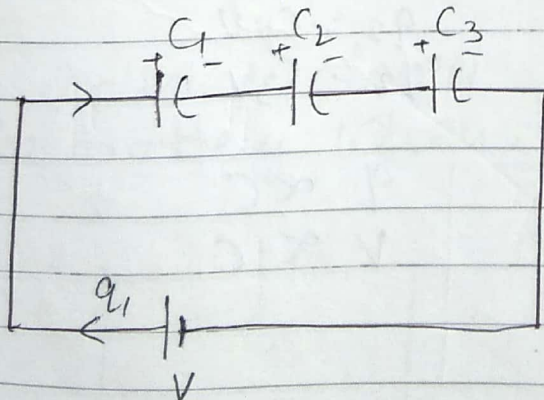 C1 C2 C3
+ - + - + -
q1
V